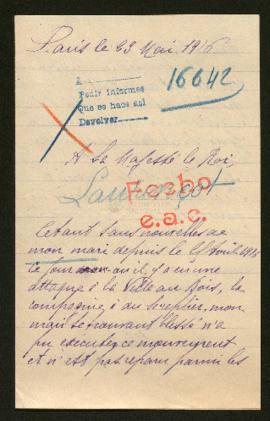 Paris le 23 Mai 1916
A
Pedir informes
Que se hace así
Devolver
16642
A Sa Majesté le Roi,
Fecho
e.a.c.
Etant sans nouvelles de
mon mari depuis le Août 1914
le jour où il y a eu une
attaque à la Ville au Bois, la
compagnie a du se replier, mon
mari se trouvant blessé n'a
pu executer ce mouvement
et n'est pas reparu parmi les